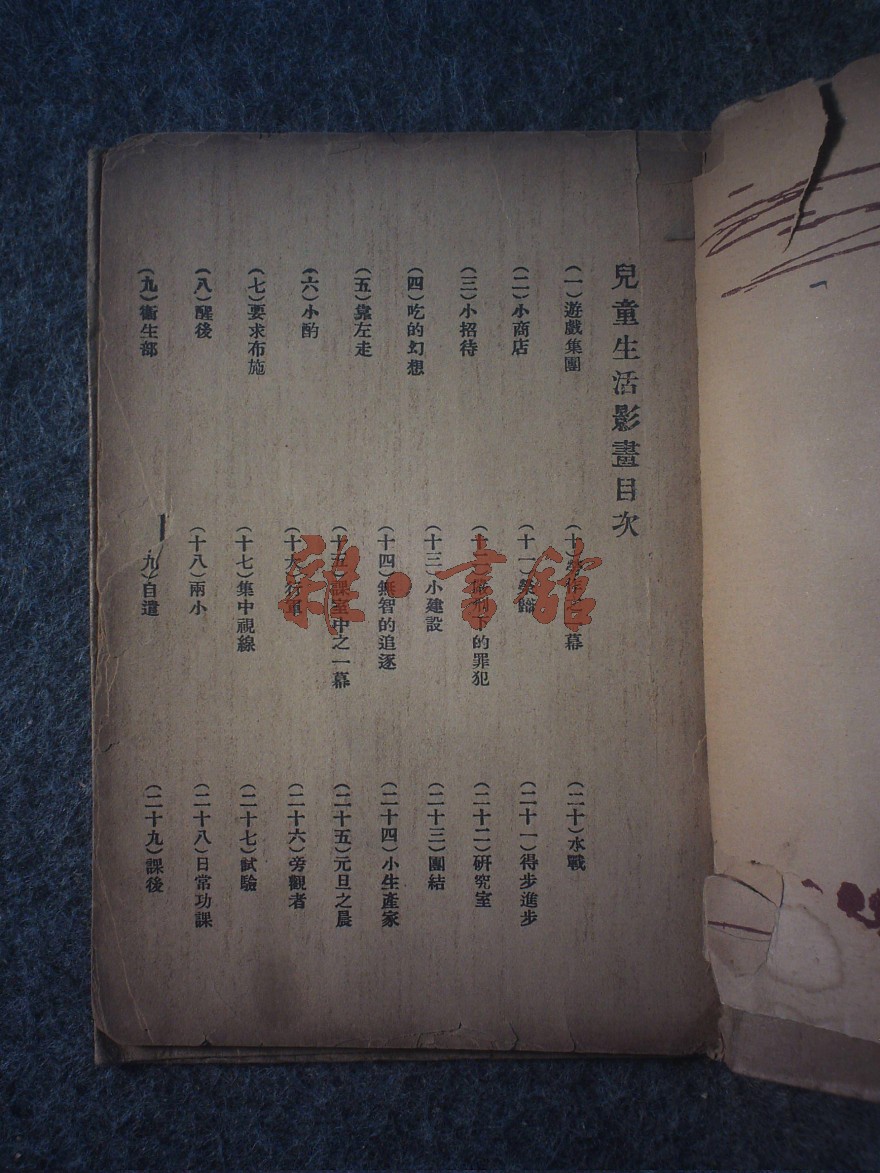 兒童生活影畫目次
(一)遊戲集團
(二)小商店
(三)小招待
(四)吃的幻想
(五)靠左走
(六)小酌
(七)要求布施
(八)醒後
(九)衞生部
(十)
幕
(十一)
(十二)
刑下的罪犯
(十三)小建設
(十四)無智的追逐
(十五)課室中之一幕
(十六)行軍
(十七)集中視線
(十八)兩小
九)自遣
(二十)水戰
(二十一)得步進步
(二十二)研究室
(二十三)團結
(二十四)小生產家
(二十五)元旦之晨
(二十六)旁觀者
(二十七)試驗
(二十八)日常功課
(二十九)課後
雜·書館